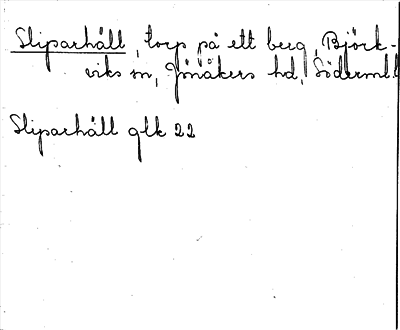 Sliparhäll, torp på ett berg, Björk-
viks sn, Jönåkers hd, Söderml.
Sliparhäll glk 22